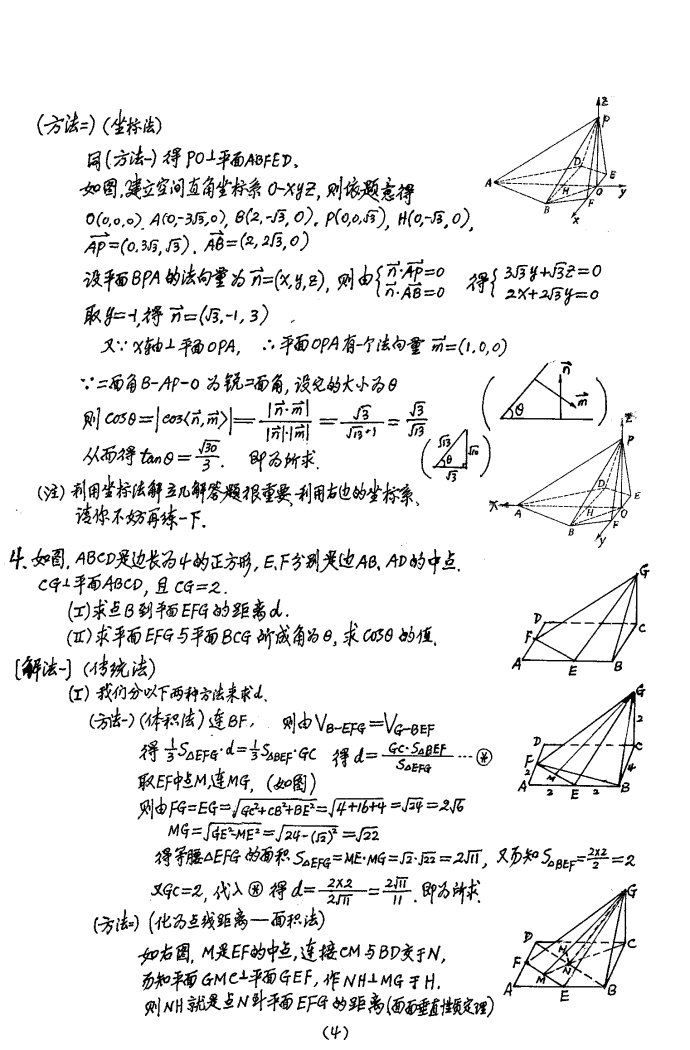 (方法二)(坐标法)
同(方法一)得PO⊥平面ABFED。
如图,建立空间直角坐标系O-xyz,则依题意得
O(0,0,0), A(0,-3√3,0), B(2,-√3,0), P(0,0,√3), H(0,-√3,0),
AP=(0,3√3,√3), AB=(2,2√3,0)
设平面BPA的法向量为n=(x,y,z),则由{n·AP=0 n·AB=0 得{3√3y+√3z=0 2x+2√3y=0
取y=-1,得n=(√3,-1,3)
又∵x轴⊥平面OPA, ∴平面OPA有一个法向量m=(1,0,0)
∵二面角B-AP-O为锐二面角,设它的大小为θ
则cosθ=|cos<n,m>|=|n·m|/(|n|·|m|)=√3/(√13·1)=√3/√13
从而得tanθ=√30/3. 即为所求.
(注)利用坐标法解立几解答题很重要,利用右边的坐标系,
请你不妨再练一下.
4. 如图,ABCD是边长为4的正方形,E、F分别是边AB、AD的中点.
CG⊥平面ABCD,且CG=2.
(Ⅰ)求点B到平面EFG的距离d.
(Ⅱ)求平面EFG与平面BCG所成角为θ,求cosθ的值.
[解法一](传统法)
(Ⅰ)我们分以下两种方法来求d.
(方法一)(体积法)连BF, 则由V_{B-EFG}=V_{G-BEF}
得1/3 S△EFG·d=1/3 S△BEF·GC 得d=GC·S△BEF/S△EFG …⊛
取EF中点M,连MG,(如图)
则由FG=EG=√(GC²+CB²+BE²)=√(4+16+4)=√24=2√6
MG=√(GE²-ME²)=√(24-(√2)²)=√22
得等腰△EFG的面积S△EFG=ME·MG=√2·√22=2√11, 又易知S△BEF=2×2/2=2
又GC=2,代入⊛得d=2×2/2√11=2√11/11. 即为所求.
(方法二)(化为点线距离——面积法)
如右图,M是EF的中点,连接CM与BD交于N,
易知平面GMC⊥平面GEF,作NH⊥MG于H.
则NH就是点N到平面EFG的距离(面面垂直性质定理)
(4)